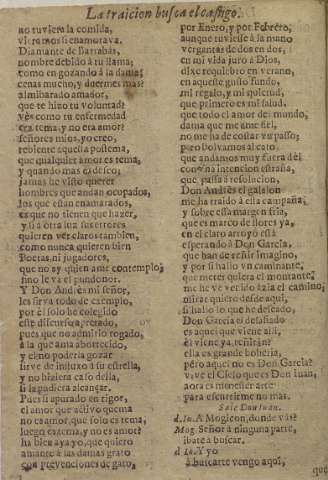 La traicion busca el castigo.
no tuviera la comida,
vieramos si enamorava.
Diamante de Barrabàs,
nombre debido à tu llama;
como en gozando à la dama;
cenas mucho, y duermes mas?
al mi ayrado amador,
que te hizo tu voluntad?
vès como tu enfermedad
era tema, y no era amor?
señores mios, yo creo,
rebiente aquesta postema,
que qualquier amor es tema,
y quando mas es deseo;
jamàs he visto querer
hombres que andan ocupados,
los que estàn enamorados,
es que no tienen que hazer,
y si à otra luz sus errores
quieren ver claros tambien,
como nunca quieren bien
Poetas, ni jugadores,
que no ay quien ame contemplo,
sino lleva el pundonor.
Y Don Andrès mi señor,
les sirva todo de exemplo,
por èl solo he colegido
este discurso
pues que no admitiò rogado,
à la que ama aborrecido,
y el no poderla gozar
sirve de influxo à su estrella,
y no hiziera caso della,
si la pudiera alcançar.
Pues si apurado en rigor,
el amor que activo quema
no es amor, que solo es tema,
luego es tema, y no es amor?
ha bien aya yo, que quiero
amante à las damas grato
con prevenciones de gato,
por Enero, y por Febrero,
aunque tuviesse à la mano
vergantas de dos en dos,
en mi vida juro à Dios,
dixe requiebro en verano,
en aqueste gusto fundo,
mi regalo, y mi quietud,
que primero es mi salud,
que todo el amor del mundo,
dama que me ame fiel,
no me ha de costar vn passo;
pero bolvamos al caso
que andamos muy fuera dèl
con vna intencion estraña,
que passa à resolucion,
Don Andrès el galalon
me ha traido à esta campaña,
y sobre esta margen fria,
que es marco de flores ya,
en el claro arroyo està
esperando à Don Garcia,
que han de reñir imagino,
y por si hallo vn caminante,
que meter quiera el montante,
me he venido àzia el camino,
mirar quiero desde aqui,
si hallo lo que he deseado,
Don Garcia el desafiado
es aquel que viene alli,
èl viene ya, reñiràn?
ella es grande boberia,
pero aquel no es Don Garcia?
vive el Cielo que es Don Iuan,
aora es menester arte
para escurrirme no mas.
Sale Don Iuan.
d. Iu. A Mogicon, donde vàs?
Mog. Señor à ninguna parte,
ibate à buscar.
d. Iu. Y yo
à buscarte vengo aqui,
que